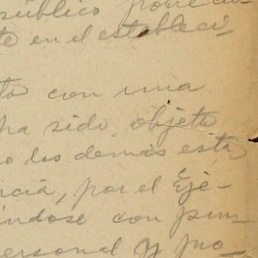 público
te en el estableci
to con una
ha sido objeto
o los demás esta
ncia, por el Ejé-
indose con pun
ersonal y pro